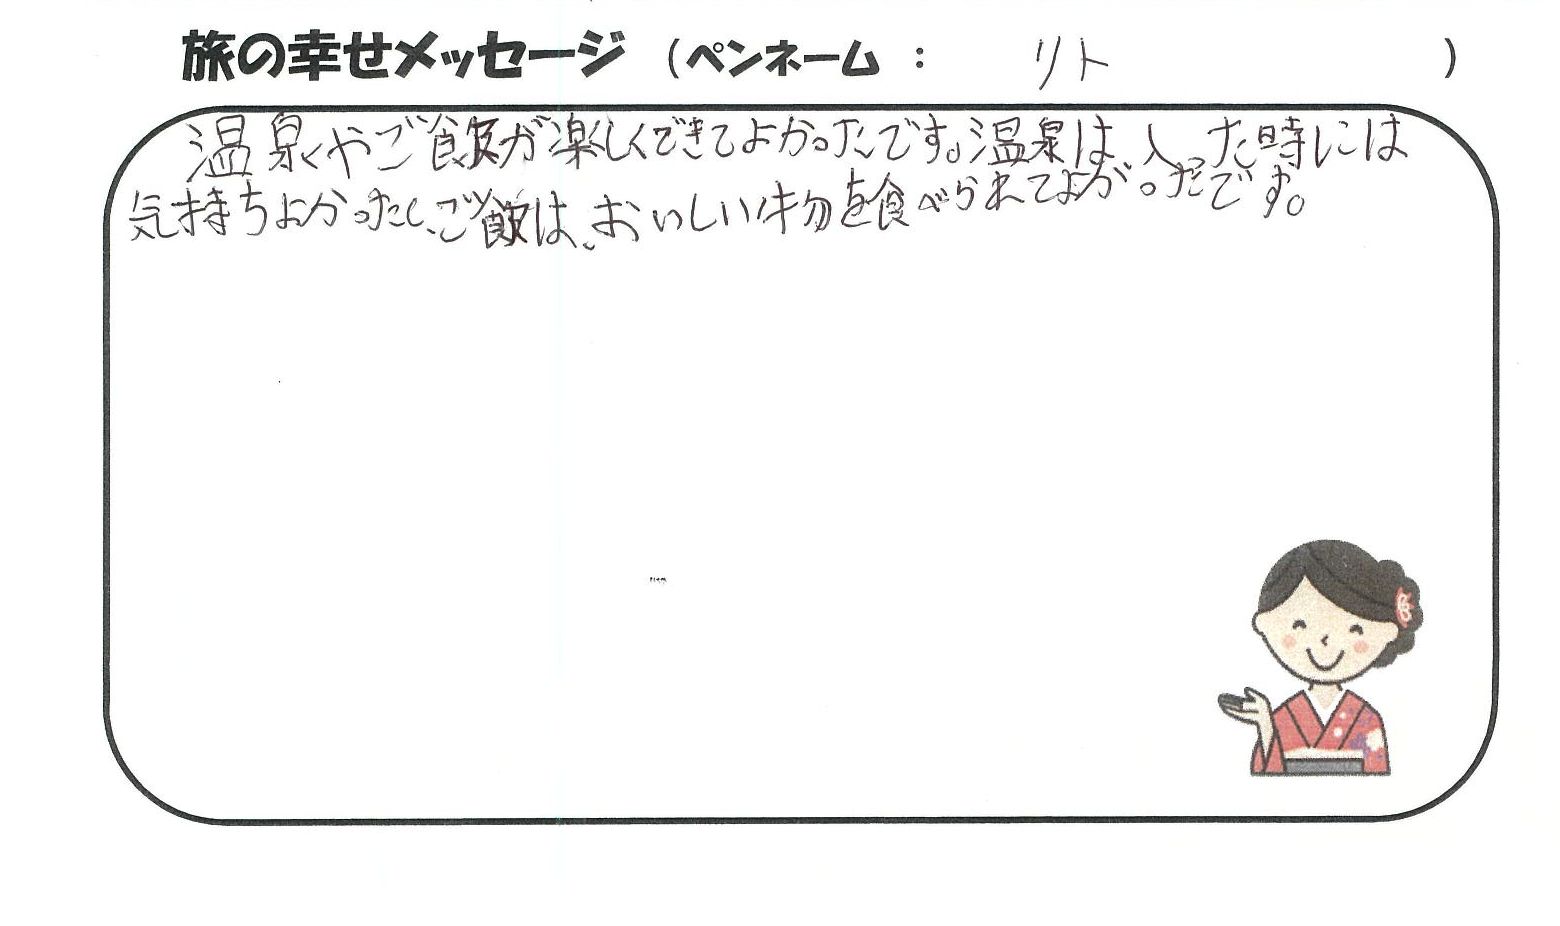 旅の幸せメッセージ (ペンネーム : リト )
温泉やご飯が楽しくできてよかったです。温泉は、入った時には
気持ちよかったし、ご飯は、おいしい物を食べられてよかったです。